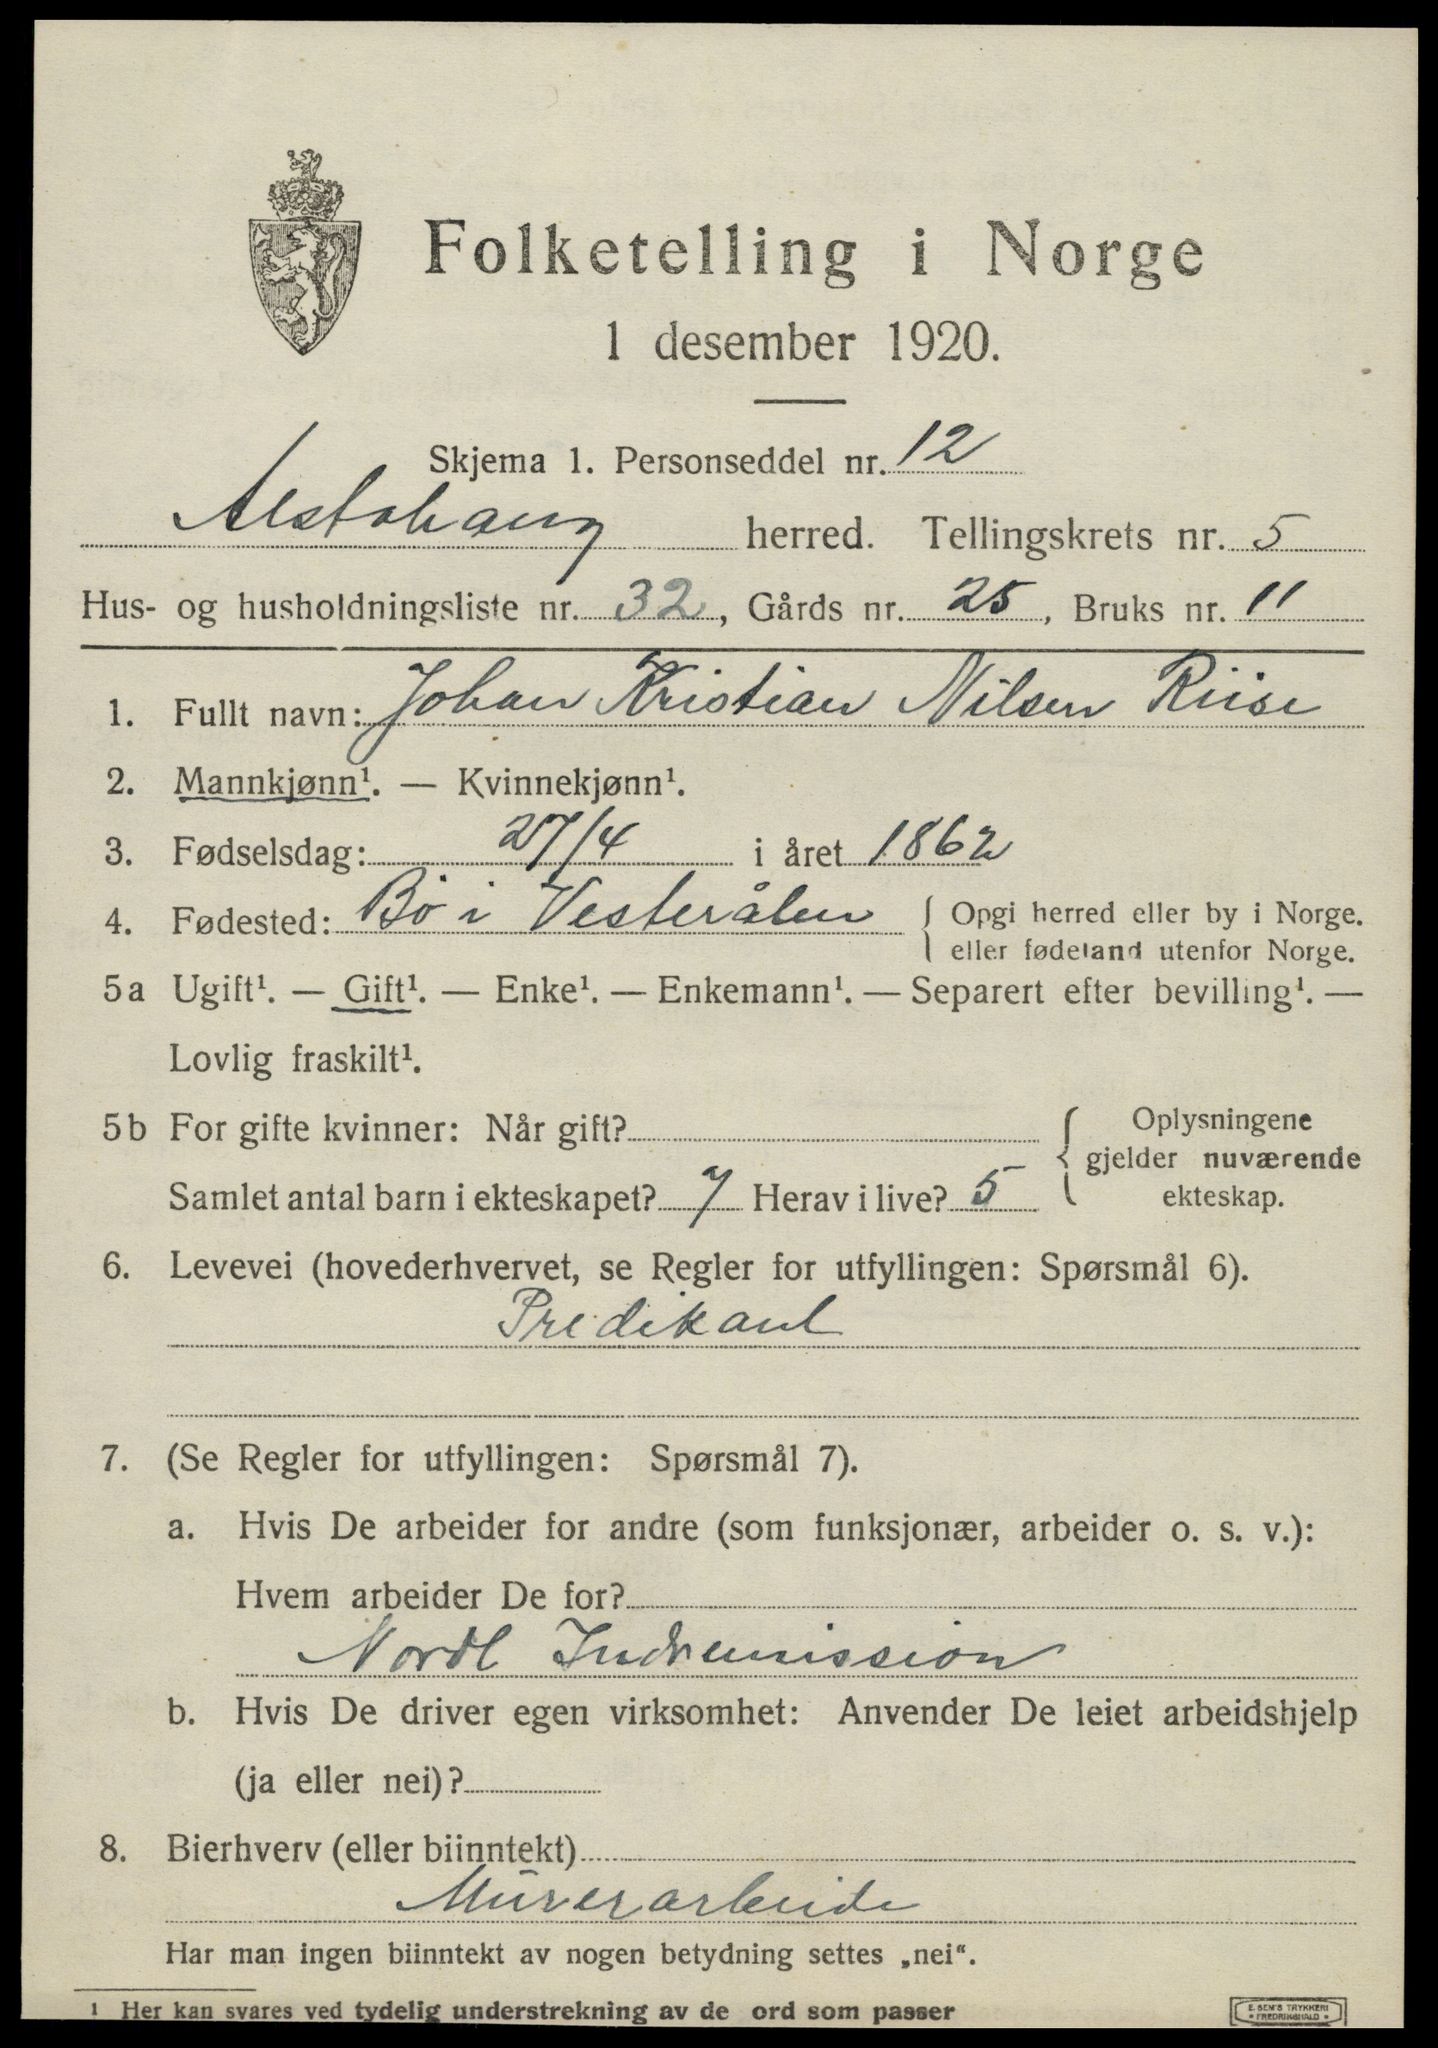 Folketelling i Norge
1 desember 1920.
Skjema 1. Personseddel nr. 12
Alstahaug herred. Tellingskrets nr. 5
Hus- og husholdningsliste nr. 32, Gårds nr. 25, Bruks nr. 11
1. Fullt navn: Johan Kristian Nilsen Riise
2. Mannkjønn¹. — Kvinnekjønn¹.
3. Fødselsdag: 27/4 i året 1862
4. Fødested: Bø i Vesterålen { Opgi herred eller by i Norge.
eller fødeland utenfor Norge.
5a Ugift¹. — Gift¹. — Enke¹. — Enkemann¹. — Separert efter bevilling¹. —
Lovlig fraskilt¹.
5b For gifte kvinner: Når gift? { Oplysningene
gjelder nuværende
Samlet antal barn i ekteskapet? 7 Herav i live? 5 ekteskap.
6. Levevei (hovederhvervet, se Regler for utfyllingen: Spørsmål 6).
Predikant
7. (Se Regler for utfyllingen: Spørsmål 7).
a. Hvis De arbeider for andre (som funksjonær, arbeider o. s. v.):
Hvem arbeider De for?
Nordl Indremission
b. Hvis De driver egen virksomhet: Anvender De leiet arbeidshjelp
(ja eller nei)?
8. Bierhverv (eller biinntekt)
Murerarbeide
Har man ingen biinntekt av nogen betydning settes „nei“.
1 Her kan svares ved tydelig understrekning av de ord som passer
E. SEM'S TRYKKERI
* FREDRIKSHALD *